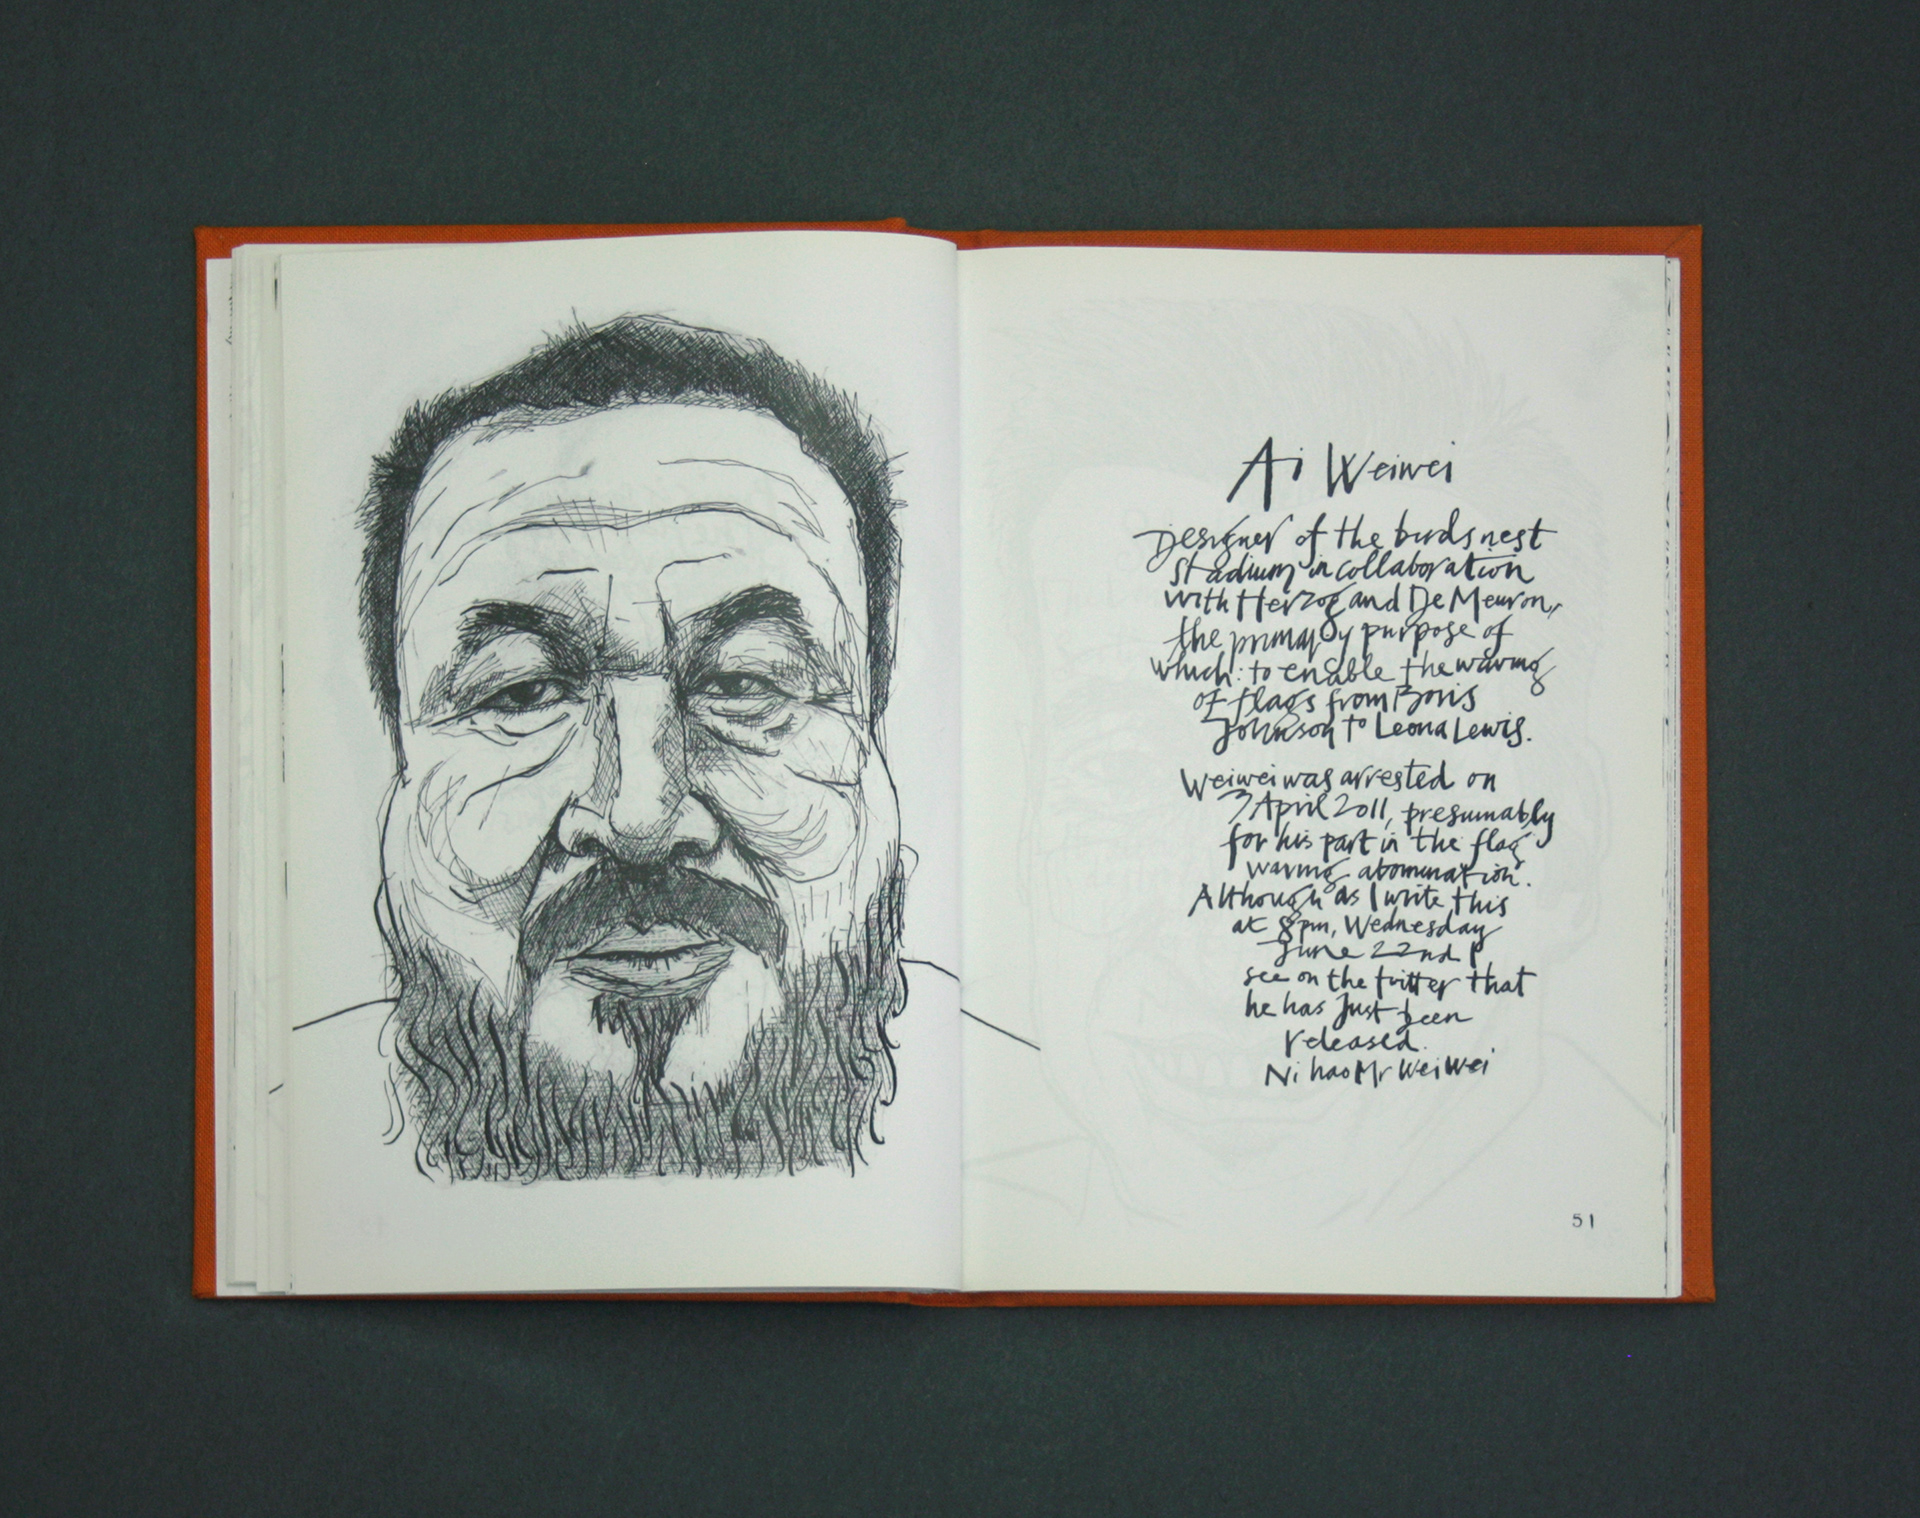 Ai Weiwei
Designer of the birds nest
stadium in collaboration
with Herzog and De Meuron,
the primary purpose of
which: to enable the waving
of flags from Boris
Johnson to Leona Lewis.
Weiwei was arrested on
3 April 2011, presumably
for his part in the flag
waving abomination.
Although as I write this
at 8pm, Wednesday
June 22nd I
see on the twitter that
he has just been
released.
Ni hao Mr Wei Wei
51